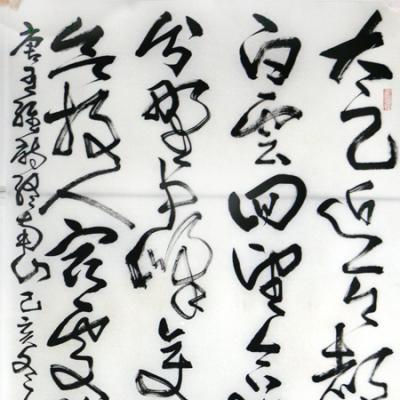 太乙近天都
白雲回望合
分野中峰變
欲投人宿處
唐王維詩終南山己亥冬